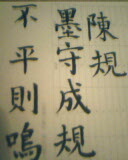 陳規
墨守成規
不平則鳴